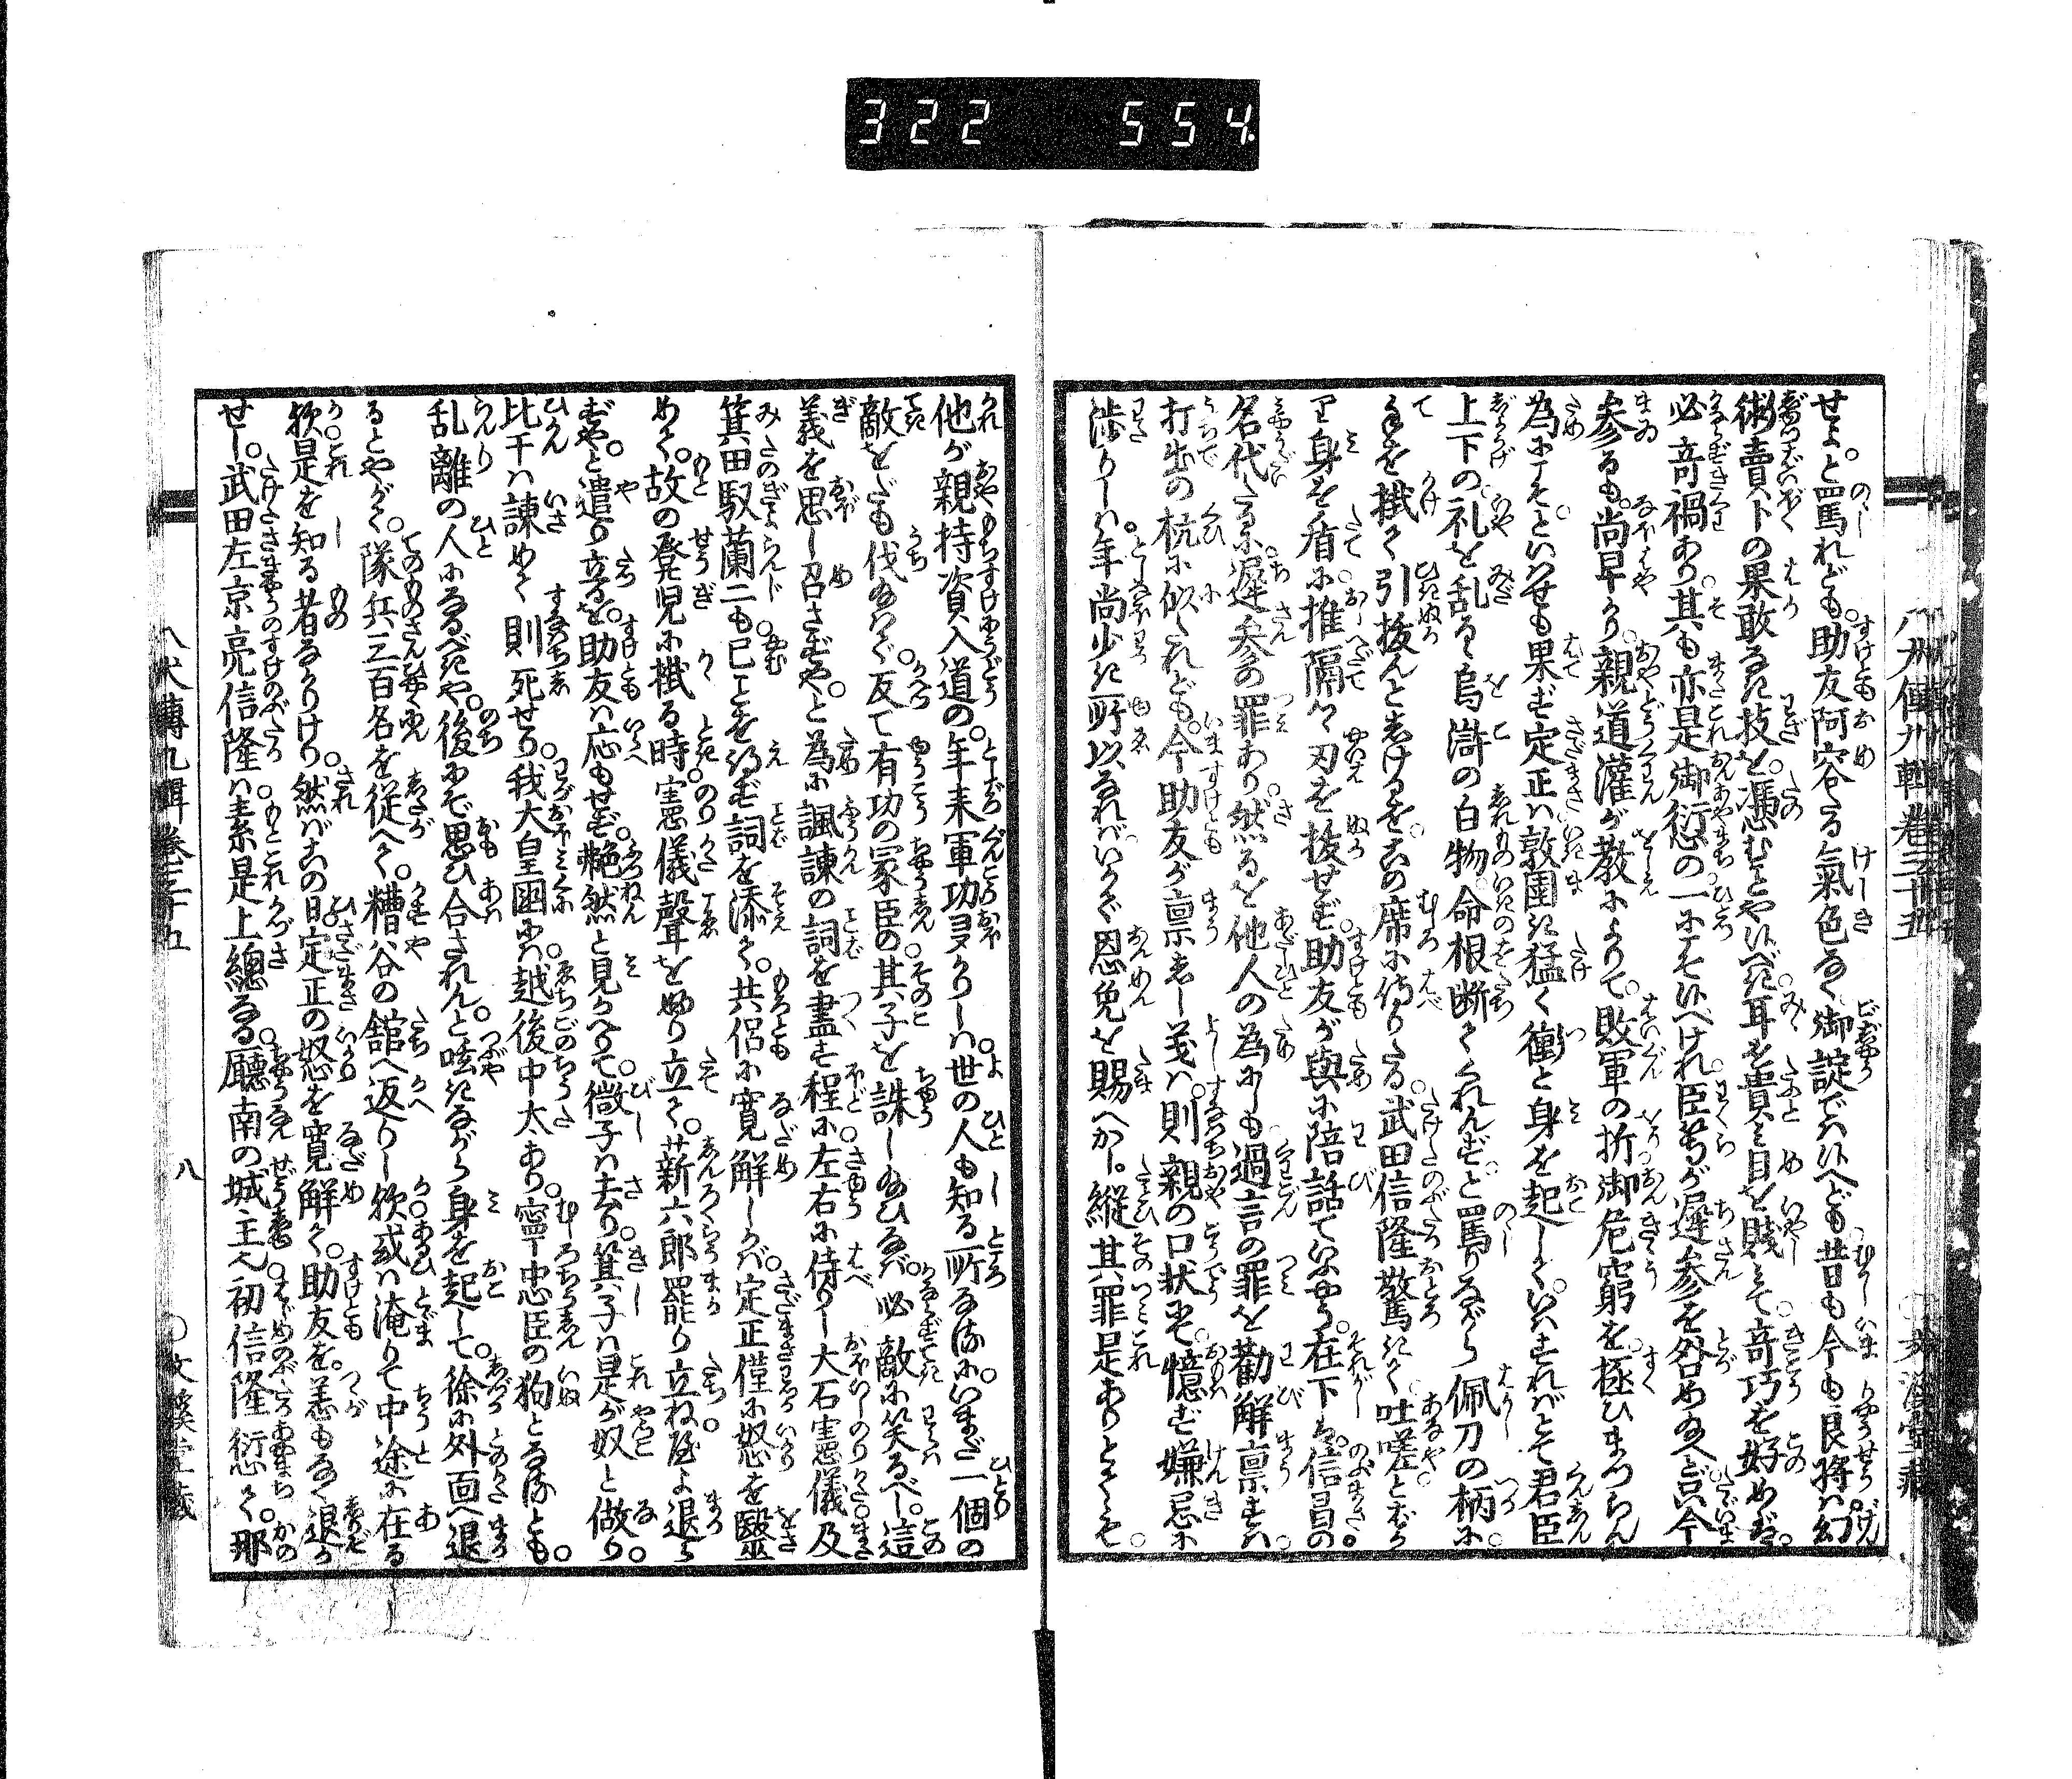 322 554
せよ。と罵れども。助友阿容たる氣色なく。御諚ではいへども昔も今も良將は幻
術賣卜の果敢なき技を。憑むとやはいふべき。耳を貴み目を賤みて。奇巧を好めば。
必奇禍あり。其も亦是御愆の一にこそいふべけれ。臣等が遲参を咎め給へど。只今
参るも。尚早かり。親道灌が教によりて。敗軍の折御危窮を。極ひまつらん
為にこそ。といはせも果ず定正は敦圉猛く衝と身を起して。いはすればとて君臣
上下の礼を乱る。烏滸の白物。命根断てくれんず。と罵りながら佩刀の柄に。
手を掛て引抜んとしけるを。この席に侍りたる。武田信隆驚きて。吐嗟とばかり
身を盾に推隔て刃を抜せず。助友が與に陪話ていふやう。在下ら。信昌の
名代たるに。遲参の罪あり。然るを他人の為にしも。過言の罪を勸解禀すは。
打出の杭に似たれども。今助友が禀しし義は。則親の口状にて。憶ず嫌忌に
渉りしは。年尚少き所以なれば。いかで恩免を賜へかし。縱其罪是ありとても。
他が親持資入道の。年来軍功多かりしは。世の人も知る所なるに。いまだ一個の
敵をだも伐給はで。反て有功の家臣の。其子を誅し給ひなば。必敵に笑るべし。這
義を思し召さずや。と為に諷諫の詞を盡す程に。左右に侍りし大石憲儀及
箕田馭蘭二も。已ことを得ず詞を添て。共侶に寛解しかば。定正僅に怒を醫
めて。故の凳児に掛る時。憲儀聲をふり立て。薪六郎罷り立ねや。よ退ら
ずや。と遣り立るを。助友は応もせず。艴然と見かへりて。微子は去り。箕子は是が奴と做り。
比干は諫めて則死せり。我大皇國には。越後中太あり。寧忠臣の狗となるとも。
乱離の人になるべきや。後にぞ思ひ合されん。と呟きながら身を起して。徐に外面へ退
るとやがて。隊兵三百名を從へて。糟谷の舘へ返りし歟。或は淹りて中途に在る
歟。是を知る者なかりけり。然ばこの日。定正の怒を寛解て。助友を。恙もなく退か
せし。武田左京亮信隆は。素是上總なる。廳南の城主也。初信隆愆て。那
八犬傳九輯卷三十五
八
文溪堂藏